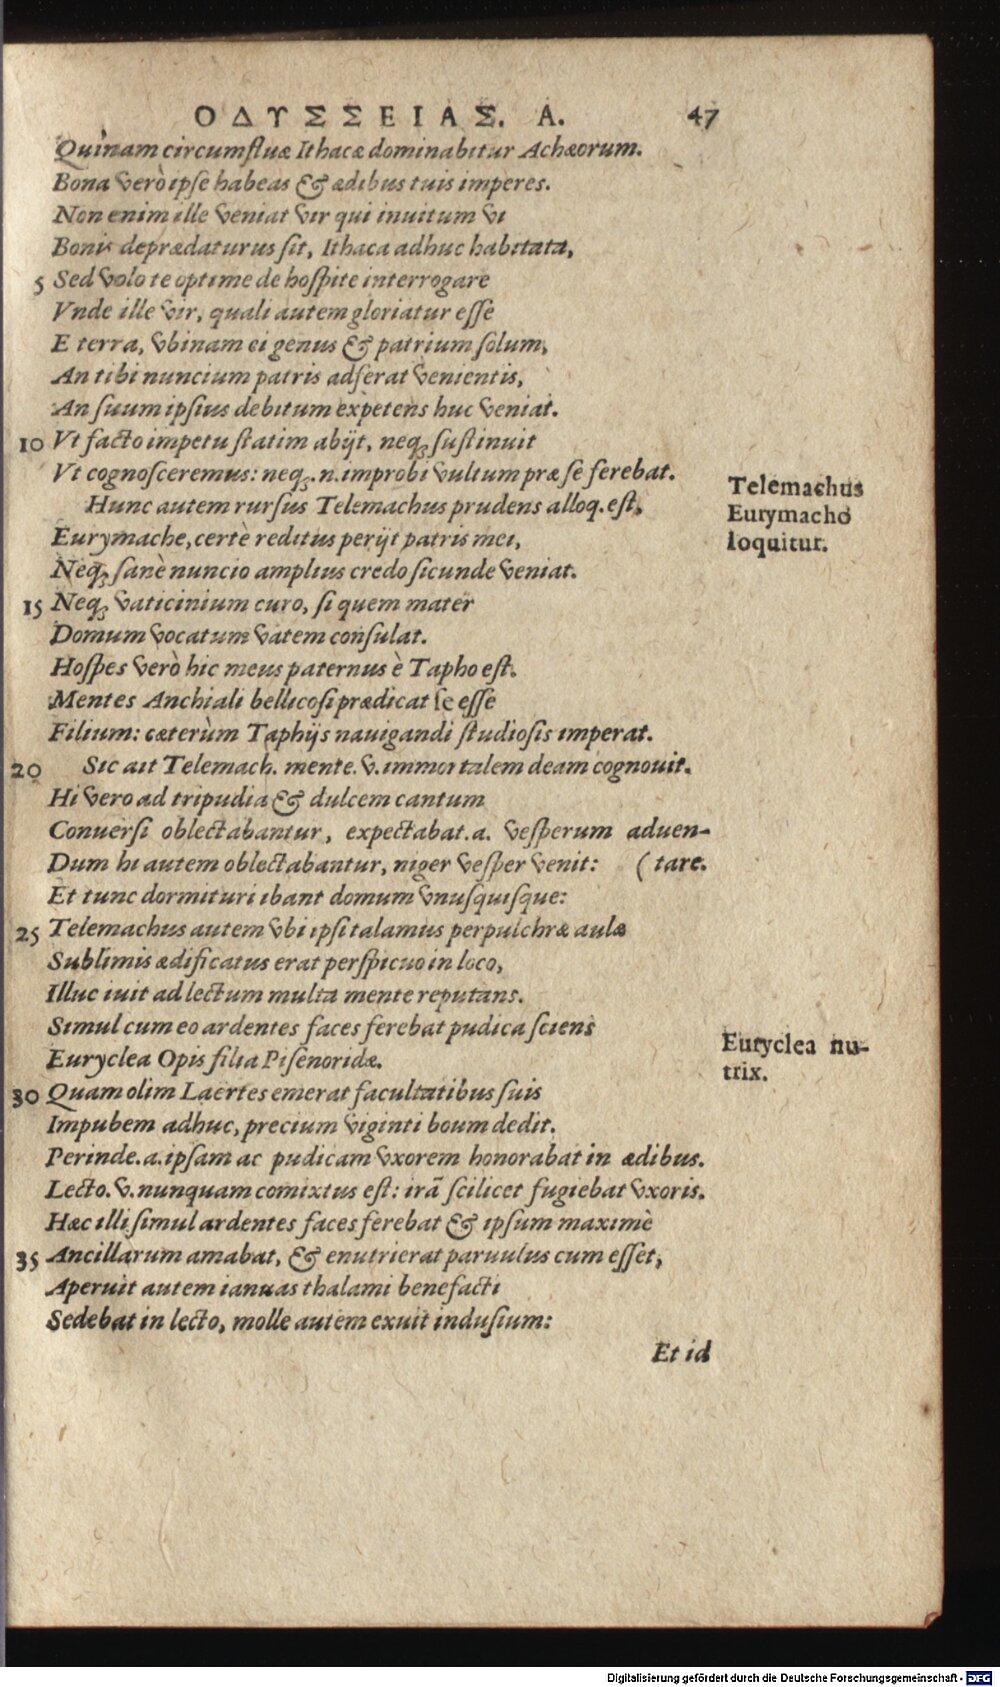 ΟΔΥΣΣΕΙΑΣ. Α. 47
Quinam circumfluæ Ithacæ dominabitur Achæorum.
Bona verò ipse habeas & ædibus tuis imperes.
Non enim ille veniat vir qui inuitum vi
Bonis deprædaturus sit, Ithaca adhuc habitata,
5 Sed volo te optime de hospite interrogare
Vnde ille vir, quali autem gloriatur esse
E terra, vbinam ei genus & patrium solum,
An tibi nuncium patris adferat venientis,
An suum ipsius debitum expetens huc veniat.
10 Vt facto impetu statim abijt, neq; sustinuit
Vt cognosceremus: neq;.n.improbi vultum præ se ferebat.
Hunc autem rursus Telemachus prudens alloq.est,
Telemachus
Eurymacho
loquitur.
Eurymache, certè reditus perijt patris mei,
Neq; sanè nuncio amplius credo sicunde veniat.
15 Neq; vaticinium curo, si quem mater
Domum vocatum vatem consulat.
Hospes verò hic meus paternus è Tapho est.
Mentes Anchiali bellicosi prædicat se esse
Filium: cæterùm Taphijs nauigandi studiosis imperat.
20 Sic ait Telemach. mente.v.immortalem deam cognouit.
Hi vero ad tripudia & dulcem cantum
Conuersi oblectabantur, expectabat.a. vesperum aduen-
Dum hi autem oblectabantur, niger vesper venit: (tare.
Et tunc dormituri ibant domum vnusquisque:
25 Telemachus autem vbi ipsi talamus perpulchræ aulæ
Sublimis ædificatus erat perspicuo in loco,
Illuc iuit ad lectum multa mente reputans.
Simul cum eo ardentes faces ferebat pudica sciens
Euryclea Opis filia Pisenoridæ.
Euryclea nu-
trix.
30 Quam olim Laertes emerat facultatibus suis
Impubem adhuc, precium viginti boum dedit.
Perinde.a.ipsam ac pudicam vxorem honorabat in ædibus.
Lecto.v.nunquam comixtus est: irã scilicet fugiebat vxoris.
Hæc illi simul ardentes faces ferebat & ipsum maximè
35 Ancillarum amabat, & enutrierat paruulus cum esset,
Aperuit autem ianuas thalami benefacti
Sedebat in lecto, molle autem exuit indusium:
Et id
Digitalisierung gefördert durch die Deutsche Forschungsgemeinschaft - DFG